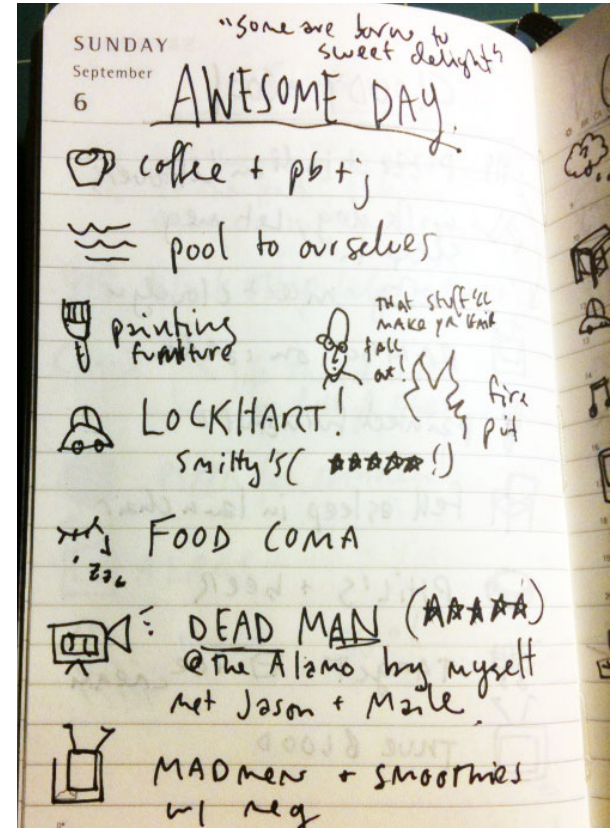 "some are born to
sweet delight"
SUNDAY
September
6
AWESOME DAY.
coffee + pb + j
pool to ourselves
painting
furniture
THAT STUFF'LL
MAKE YR HAIR
fall
out!
fire
pit
LOCKHART!
Smitty's (★★★★★!)
zzz
FOOD COMA
DEAD MAN (★★★★★)
@ The Alamo by myself
met Jason + Maile.
MADMEN + SMOOTHIES
w/ meg